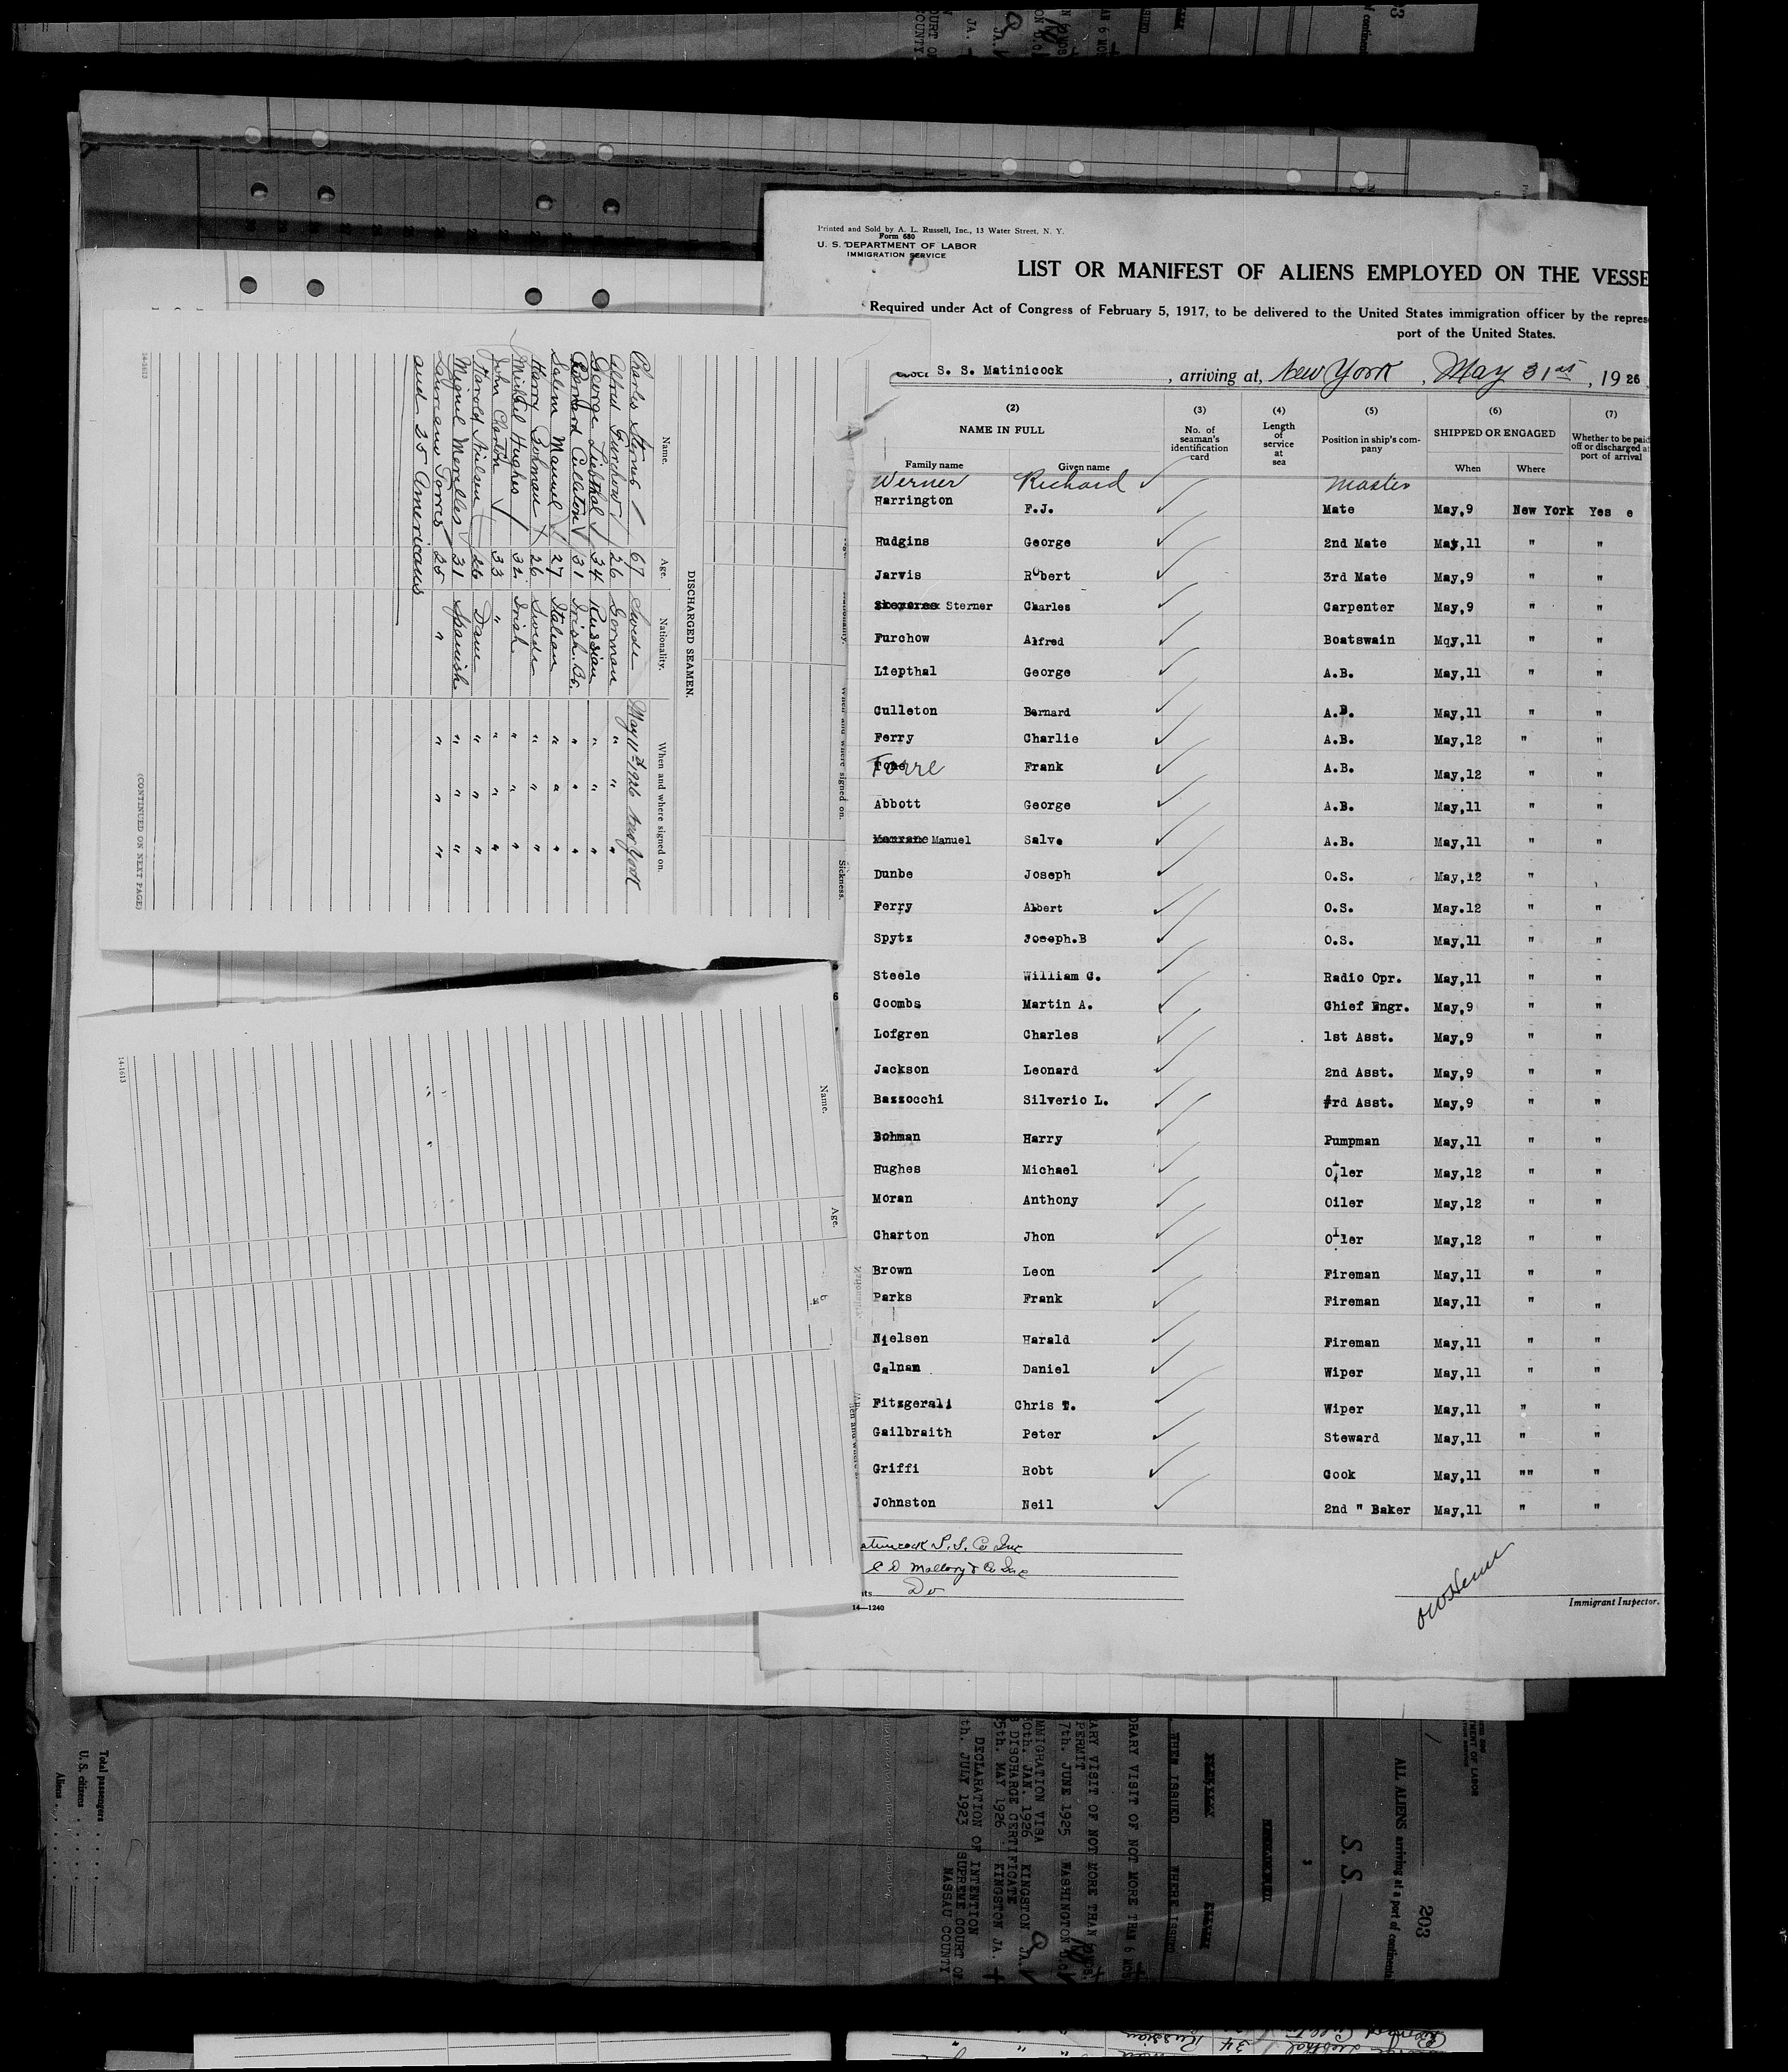 Printed and Sold by A. L. Russell, Inc., 13 Water Street, N. Y.
Form 680
U. S. DEPARTMENT OF LABOR
IMMIGRATION SERVICE
LIST OR MANIFEST OF ALIENS EMPLOYED ON THE VESSE
Required under Act of Congress of February 5, 1917, to be delivered to the United States immigration officer by the repres
port of the United States.
S. S. Matinicock , arriving at, New York , May 31st , 1926
(2) (3) (4) (5) (6) (7)
NAME IN FULL No. of seaman's identification card Length of service at sea Position in ship's company SHIPPED OR ENGAGED Whether to be paid off or discharged at port of arrival
Family name Given name When Where
Werner Richard Master
Harrington F.J. Mate May,9 New York Yes e
Hudgins George 2nd Mate May,11 " "
Jarvis Robert 3rd Mate May,9 " "
Sterner Charles Carpenter May,9 " "
Furchow Alfred Boatswain May,11 " "
Liepthal George A.B. May,11 " "
Culleton Bernard A.B. May,11 " "
Ferry Charlie A.B. May,12 " "
Torre Frank A.B. May,12 " "
Abbott George A.B. May,11 " "
Manuel Salve A.B. May,11 " "
Dunbe Joseph O.S. May,12 "
Ferry Albert O.S. May.12 " "
Spytz Joseph.B O.S. May,11 " "
Steele William C. Radio Opr. May,11 " "
Coombs Martin A. Chief Engr. May,9 " "
Lofgren Charles 1st Asst. May,9 " "
Jackson Leonard 2nd Asst. May,9 " "
Bazzocchi Silverio L. #rd Asst. May,9 " "
Bohman Harry Pumpman May,11 " "
Hughes Michael Oiler May,12 " "
Moran Anthony Oiler May,12 " "
Charton Jhon Oiler May,12 " "
Brown Leon Fireman May,11 " "
Parks Frank Fireman May,11 " "
Nielsen Harald Fireman May,11 " "
Calnan Daniel Wiper May,11 " "
Fitzgerali Chris T. Wiper May,11 " "
Gailbraith Peter Steward May,11 " "
Griffi Robt Cook May,11 "" "
Johnston Neil 2nd " Baker May,11 " "
S. S. Co Inc
C D Mallory & Co Inc
Do
14—1240
Immigrant Inspector.
When and where signed on. Sickness.
DISCHARGED SEAMEN.
Name. Age. Nationality. When and where signed on.
Charles Sterner 67 Swede May 11th 1926 New York
Alfred Furchow 26 German " " "
George Liepthal 34 Russian " " "
Bernard Culleton 31 Irish. Br. " " "
Salim Manuel 27 Italian " " "
Harry Bohman 26 Swede " " "
Michael Hughes 32 Irish " " "
John Charton 33 " " " "
Harold Nielsen 26 Dane " " "
Miguel Merelles 31 Spanish " " "
Laureano Torres 25 " " " "
and 25 Americans
14-1613
(CONTINUED ON NEXT PAGE)
Name. Age.
14-1613
Total passengers
U. S. citizens
Aliens
DECLARATION OF INTENTION
SUPREME COURT OF
th. JULY 1923 NASSAU COUNTY
DISCHARGE CERTIFICATE
5th. MAY 1926 KINGSTON JA.
IMMIGRATION VISA
0th. JAN. 1926 KINGSTON JA.
ARY VISIT OF NOT MORE THAN 6 MOS.
PERMIT
7th. JUNE 1925 WASHINGTON D.C.
ORARY VISIT OF NOT MORE THAN 6 MOS
WHEN ISSUED WHERE ISSUED
S. S.
ALL ALIENS arriving at a port of continental
203